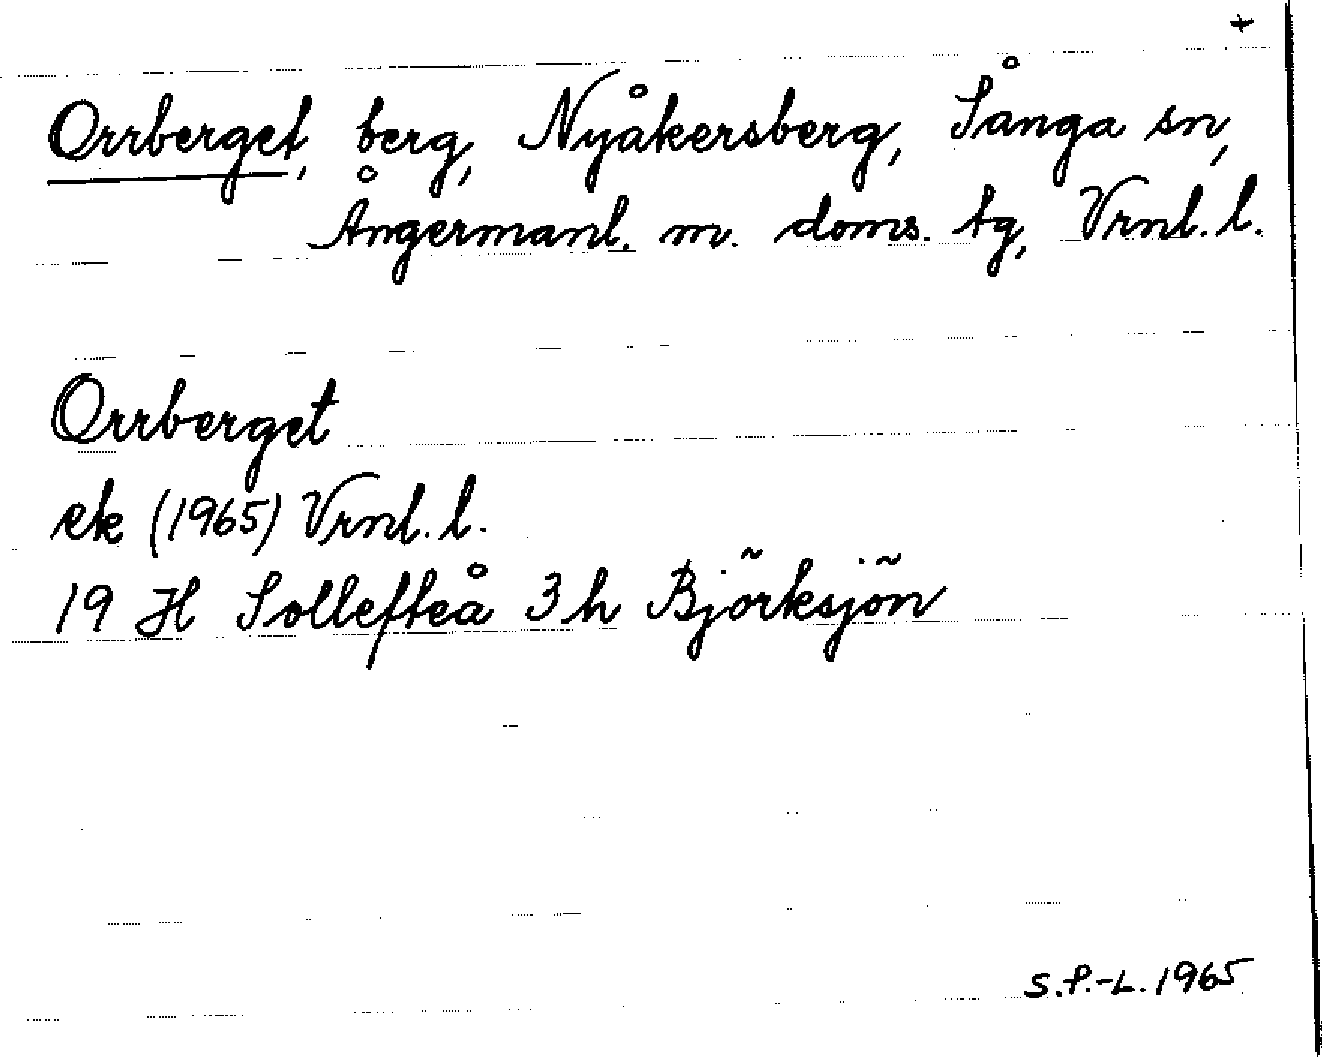 +
Orrberget, berg, Nyåkersberg, Sånga sn,
Ångermanl. m. doms. tg, Vrnl. l.
Orrberget
ek (1965) Vrnl. l.
19 H Sollefteå 3 h Björksjön
S.P.-L. 1965